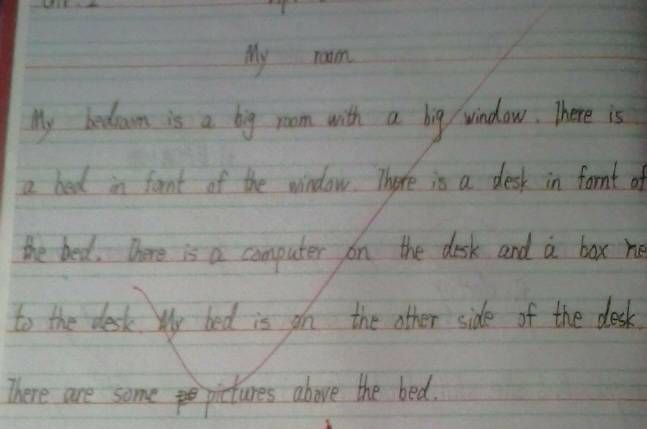 My room
My bedroom is a big room with a big window. There is
a bed in fornt of the window. There is a desk in fornt of
the bed. There is a computer on the desk and a box ne
to the desk. My bed is on the other side of the desk.
There are some pictures above the bed.